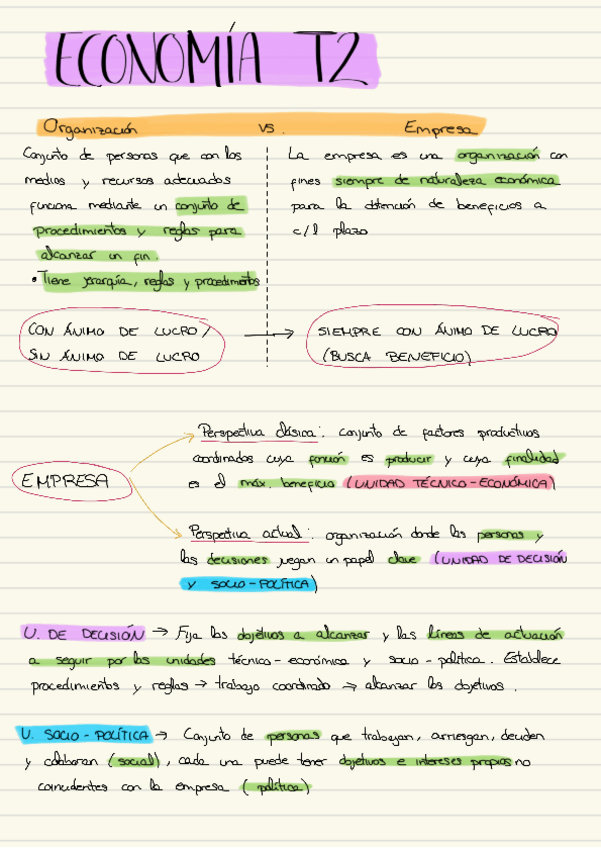 ECONOMÍA T2
Organización vs. Empresa
Conjunto de personas que con los
medios y recursos adecuados
funciona mediante un conjunto de
procedimientos y reglas para
alcanzar un fin.
• Tiene jerarquía, reglas y procedimientos
La empresa es una organización con
fines siempre de naturaleza económica
para la obtención de beneficios a
c/l plazo
CON ÁNIMO DE LUCRO /
SIN ÁNIMO DE LUCRO
→ SIEMPRE CON ÁNIMO DE LUCRO
(BUSCA BENEFICIO)
EMPRESA
Perspectiva clásica: conjunto de factores productivos
coordinados cuya función es producir y cuya finalidad
es el máx. beneficio (UNIDAD TÉCNICO-ECONÓMICA)
Perspectiva actual: organización donde las personas y
las decisiones juegan un papel clave (UNIDAD DE DECISIÓN
Y SOCIO-POLÍTICA)
U. DE DECISIÓN → Fija los objetivos a alcanzar y las líneas de actuación
a seguir por las unidades técnico-económica y socio-política. Establece
procedimientos y reglas → trabajo coordinado → alcanzar los objetivos.
U. SOCIO-POLÍTICA → Conjunto de personas que trabajan, arriesgan, deciden
y colaboran (social), cada una puede tener objetivos e intereses propios no
coincidentes con la empresa (política)